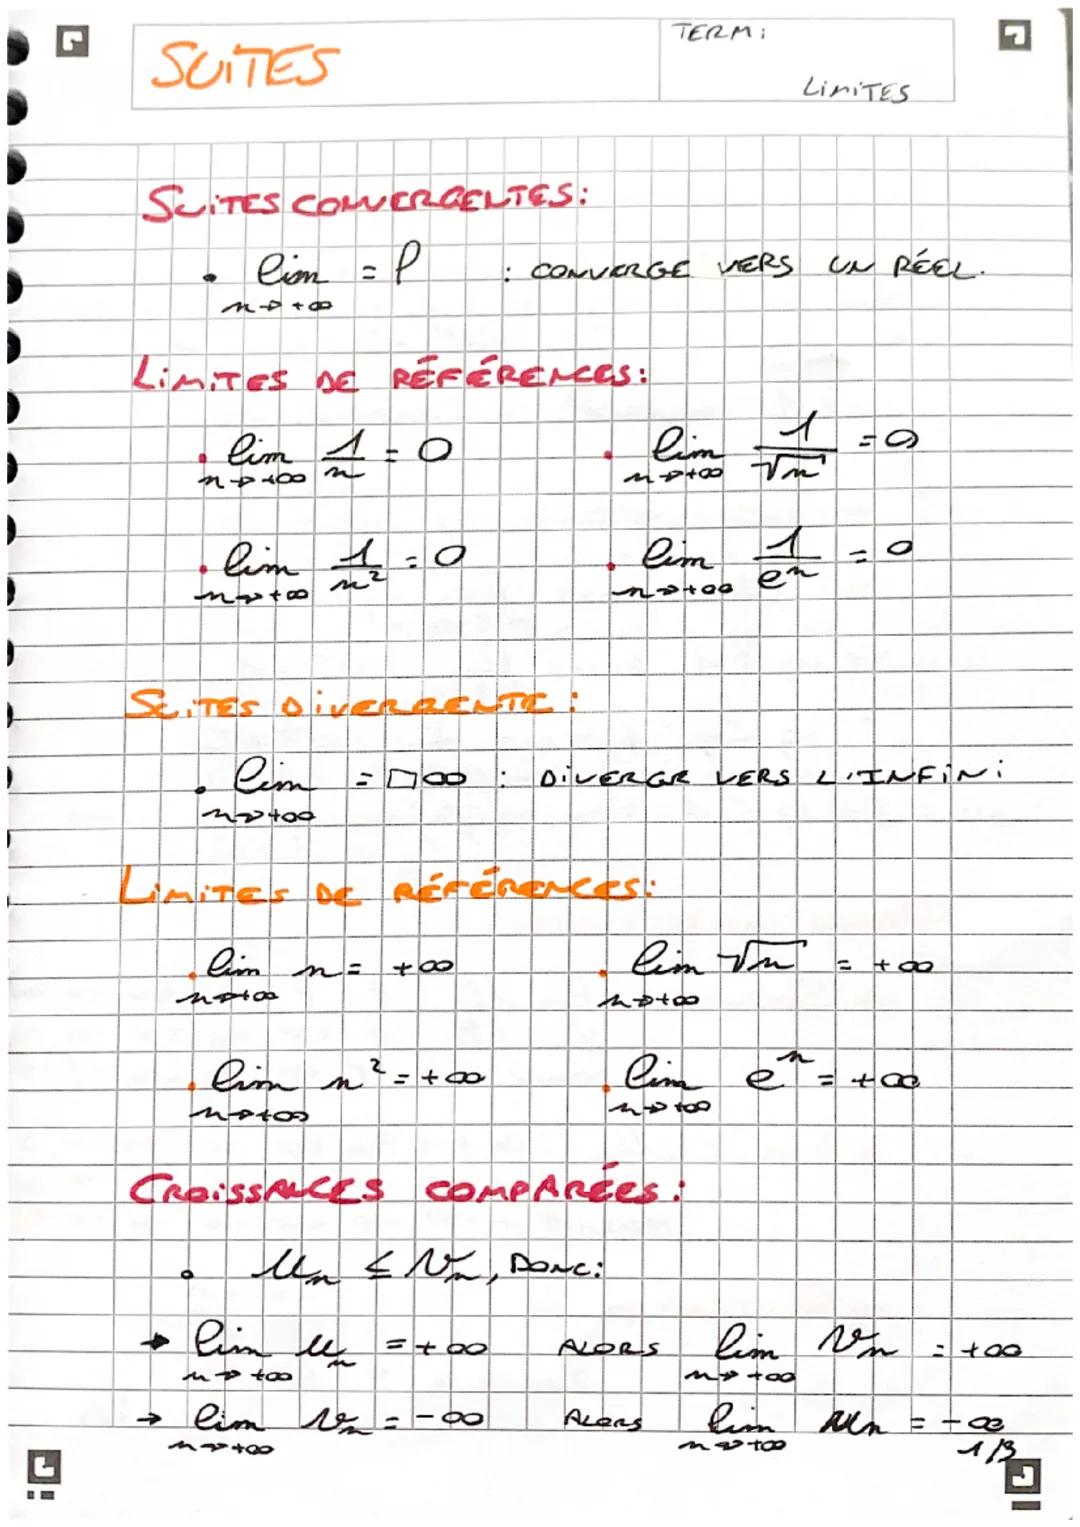 SUiTES
TERM:
LiMiTES
SUiTES CONVERGENTES:
• lim = l : CONVERGE VERS UN RÉEL.
n→+∞
LiMiTES DE RÉFÉRENCES:
• lim 1/n = 0 • lim 1/√n = 0
n→+∞ n→+∞
• lim 1/n² = 0 • lim 1/eⁿ = 0
n→+∞ n→+∞
SUiTES DiVERGENTE:
• lim = □∞ : DiVERGE VERS L'INFiNi
n→+∞
LiMiTES DE RÉFÉRENCES:
• lim n = +∞ • lim √n = +∞
n→+∞ n→+∞
• lim n² = +∞ • lim eⁿ = +∞
n→+∞ n→+∞
CROiSSANCES COMPARÉES:
• Uₙ ≤ Vₙ, DONC:
→ lim uₙ = +∞ ALORS lim Vₙ = +∞
n→+∞ n→+∞
→ lim vₙ = -∞ ALORS lim Uₙ = -∞
n→+∞ n→+∞
1/3